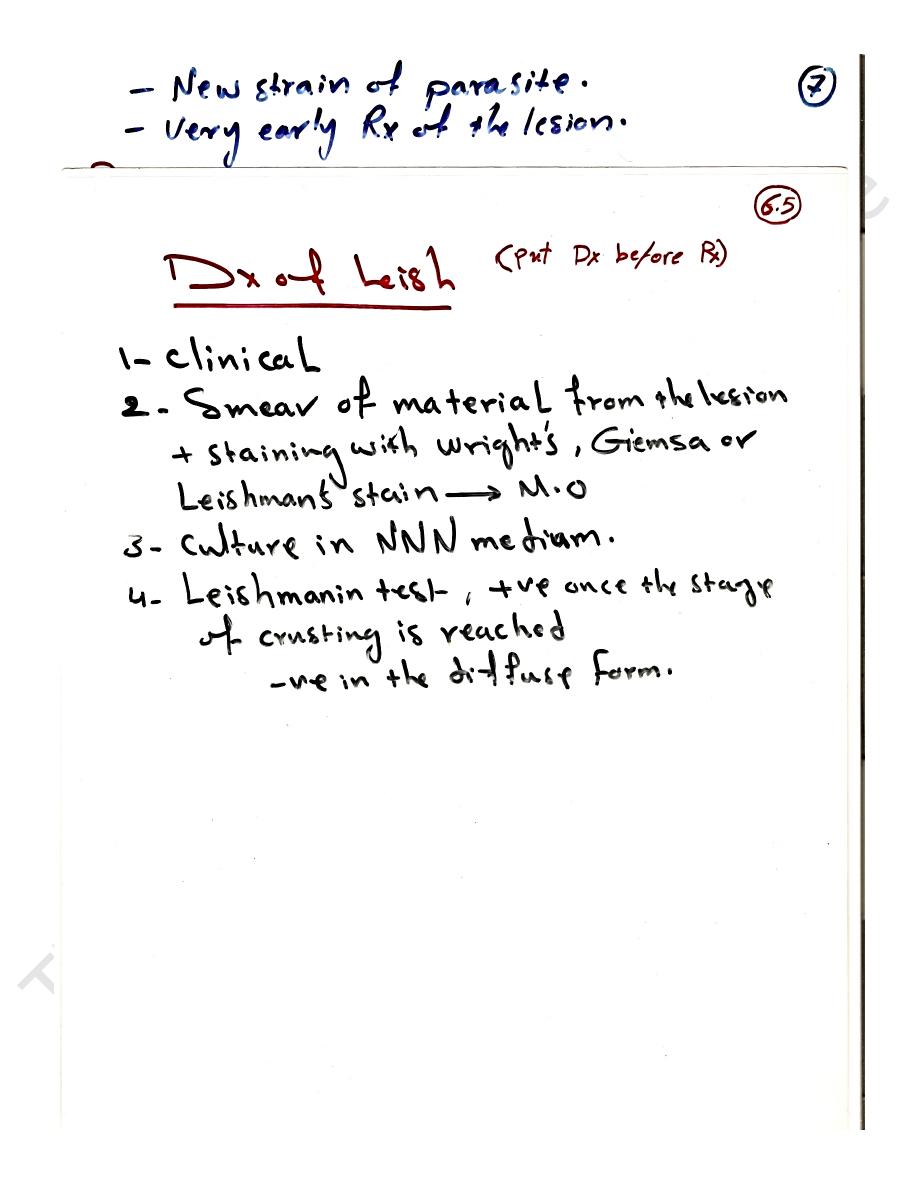 - New strain of parasite.
7
- Very early Rx of the lesion.
6.5
Dx of Leish (put Dx before Rx)
1- Clinical
2- Smear of material from the lesion
+ staining with Wright's, Giemsa or
Leishman's stain → M.O
3- Culture in NNN medium.
4- Leishmanin test, +ve once the stage
of crusting is reached
-ve in the diffuse form.